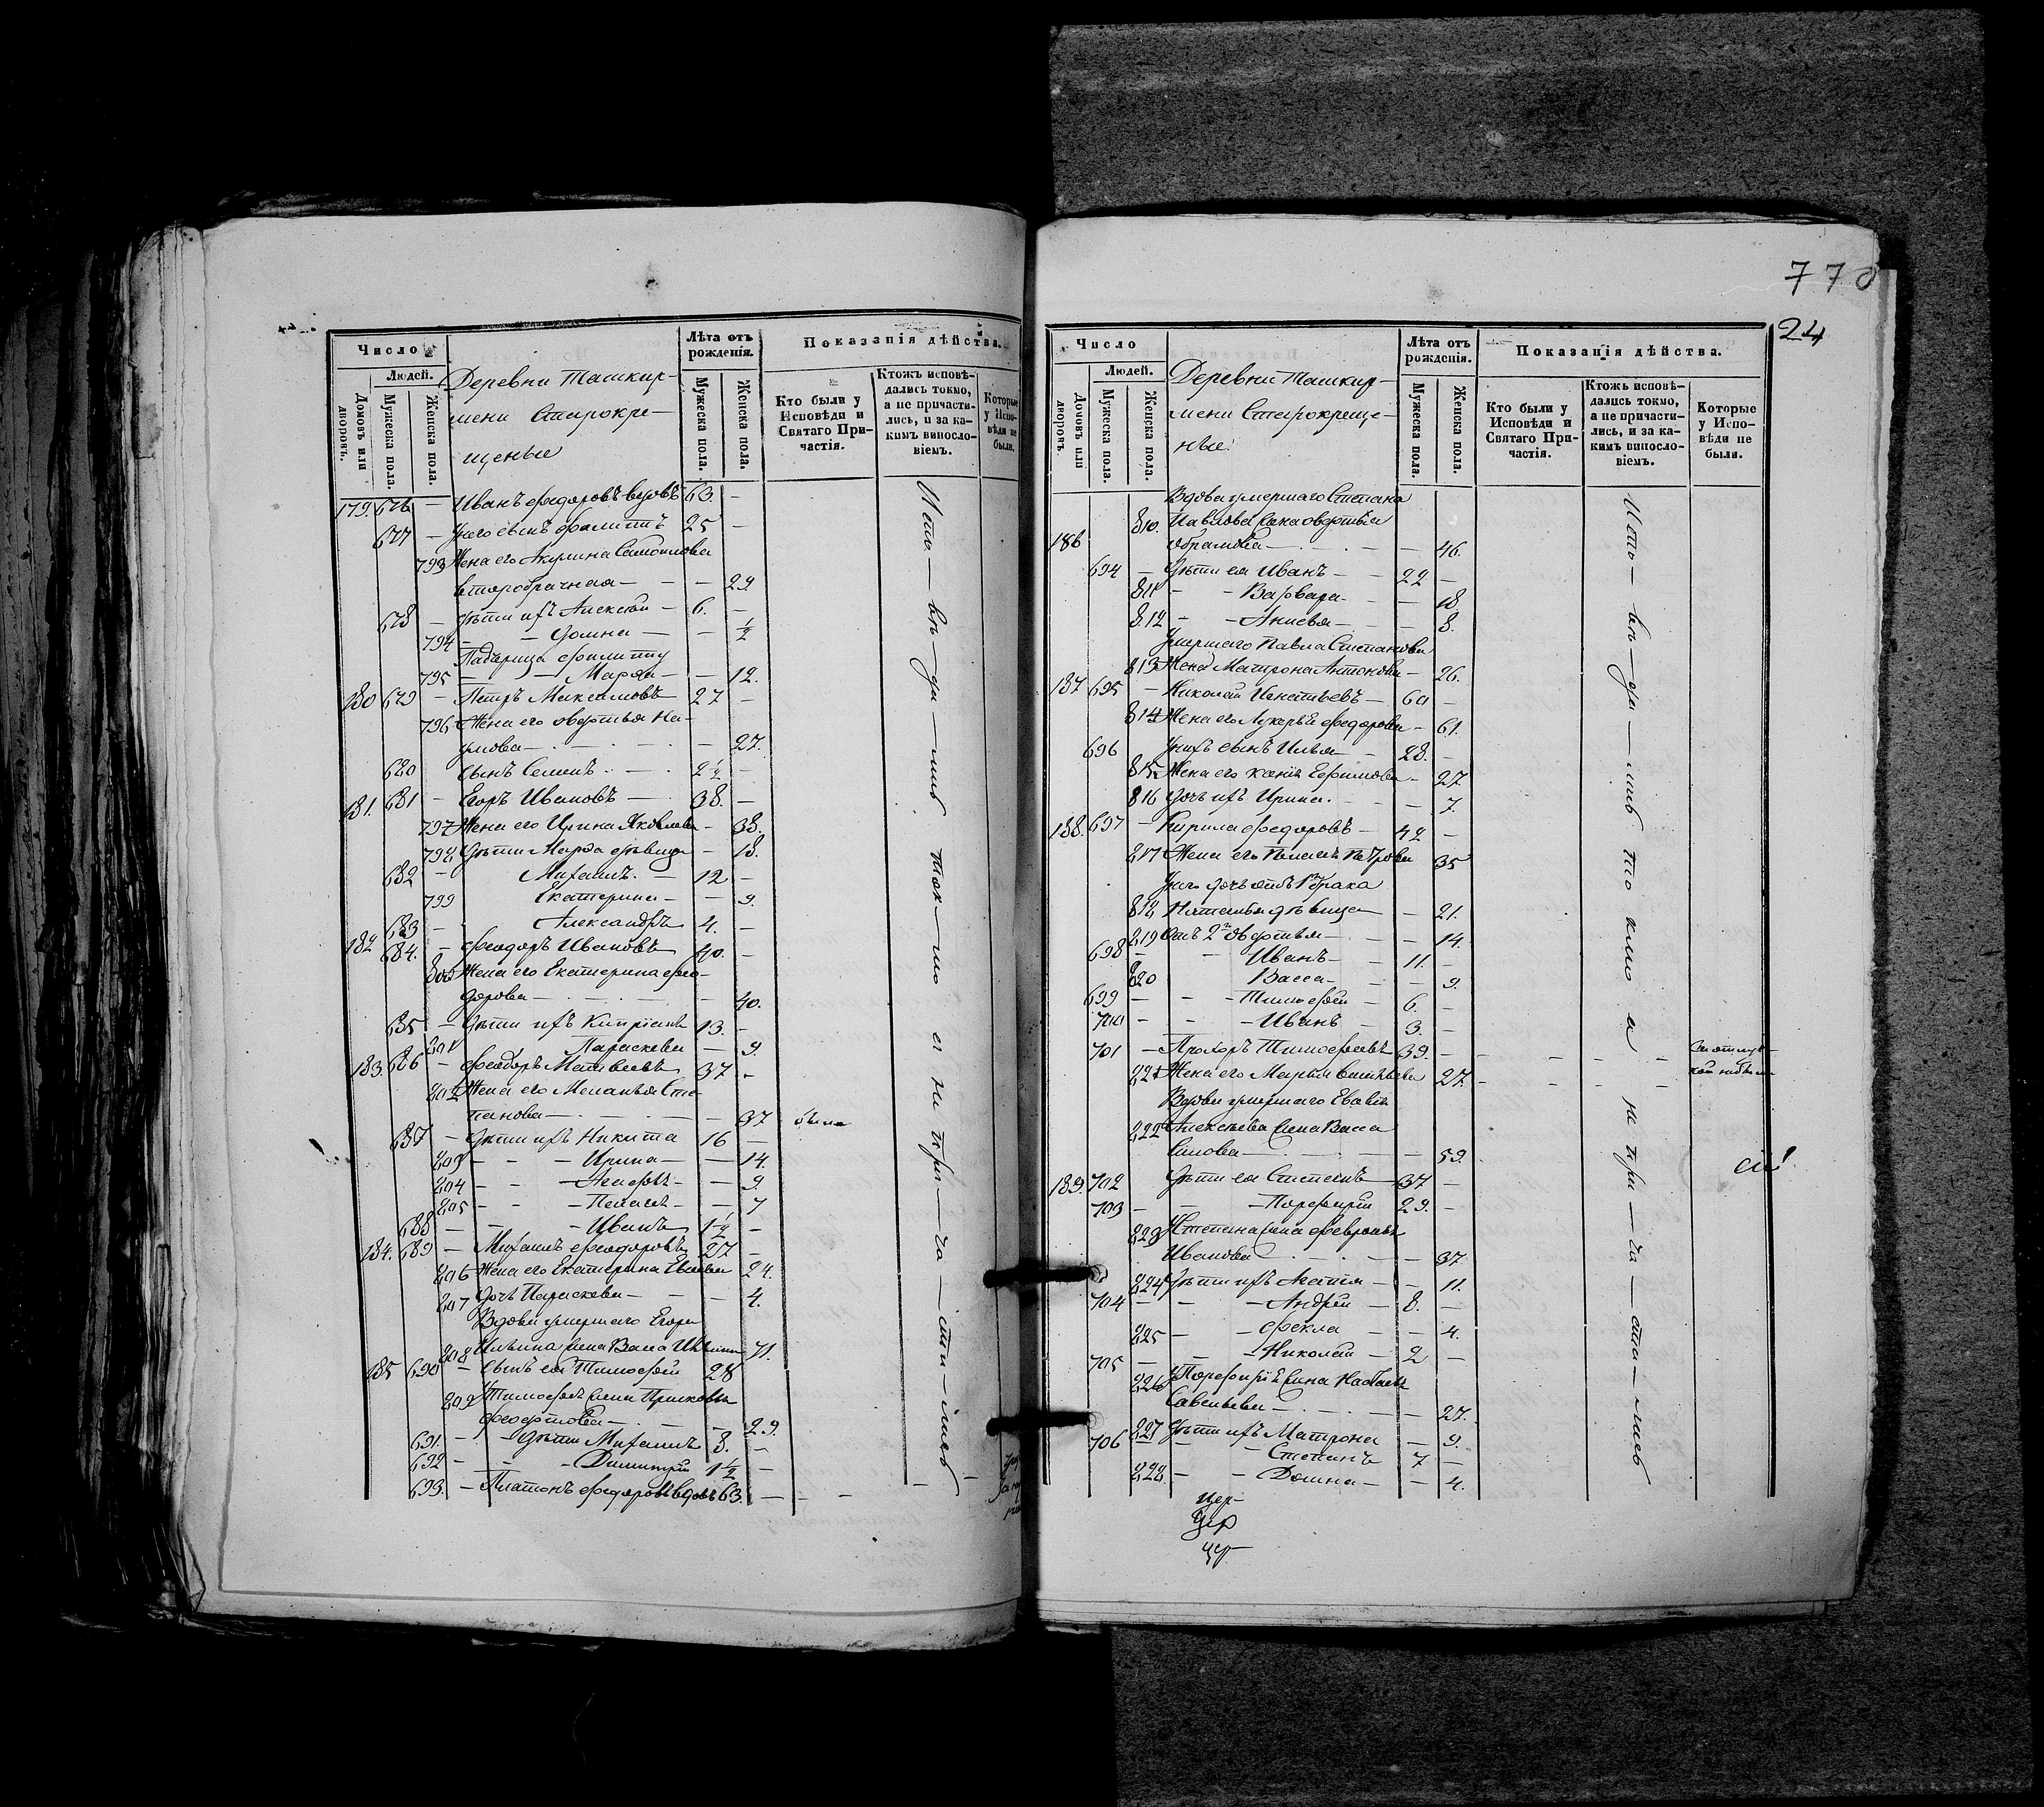 Число
Людей.
Домовъ или дворовъ.
Мужеска пола.
Женска пола.
Деревни Ташкир-
мени Старокре-
щеные
Лѣта отъ рожденія.
Мужеска пола.
Женска пола.
Показанія дѣйства.
Кто были у Исповѣди и Святаго Причастія.
Ктожъ исповѣдались токмо, а не причастились, и за какимъ винословіемъ.
Которые у Исповѣди не были.
179. 676 — Иванъ Феодоровъ вдовъ 63. —
677 — У него сынъ Филиппъ 25 —
793 Жена его Акулина Самойлова
второбрачная — — 29.
678 — Дѣти ихъ Алексѣй — 6. —
794 — Домна — — ½
Падчерица Филиппу
795 — Марѳа — — 12.
180 679 — Петръ Максимовъ 27 —
796 Жена его Овдотья На-
умова — 27.
680 сынъ Семенъ 2½ —
181. 681 — Егоръ Ивановъ — 38. —
797 Жена его Ирина Яковлева — 38.
798 Дѣти Марѳа дѣвица — 18.
682 — Михаилъ — 12 —
799 Екатерина — — 9.
683 — Александръ 4. —
182 684. — Феодоръ Ивановъ 40. —
800 Жена его Екатерина Фео-
дорова — 40.
685 — Дѣти ихъ Кипріанъ 13. —
801 Параскева — 9.
183. 686 — Феодоръ Матвеевъ 37 —
802 Жена его Меланья Сте-
панова — 37 была
687 — Дѣти ихъ Никита 16 —
803 — — Ирина — — 14.
804 — — Агафья — — 9
805 — — Пелагея — — 7
688 — — Иванъ 1½ —
184. 689 — Михаилъ Феодоровъ 27. —
806 Жена его Екатерина 24.
807 Дочь Параскева — — 4.
Вдова умершаго Егора
808 Ильина жена Васса 71.
185 690 — Сынъ ея Тимофей 28
809 Тимофея жена
— 29.
691. — Дѣти Михаилъ 8. —
692 — Димитрій 1½ —
693. — Платонъ Феодоровъ вдовъ 63. — —
Исповѣдались токмо а не причастились
770
24
Число
Людей.
Домовъ или дворовъ
Мужеска пола.
Женска пола.
Деревни Ташкир-
мени Старокреще-
ные.
Лѣта отъ рожденія.
Мужеска пола.
Женска пола.
Показанія дѣйства.
Кто были у Исповѣди и Святаго Причастія.
Ктожъ исповѣдались токмо, а не причастились, и за какимъ винословіемъ.
Которые у Исповѣди не были.
Вдова умершаго Степана
810. Павлова жена Овдотья
186 Абрамова — — 46.
694 — Дѣти ея Иванъ — 22 —
811 — Варвара — — 18.
812 — Анисья — — 8.
Умершаго Павла Степанова
813 Жена Матрона Антонова — 26.
187 695 — Николай Игнатьевъ — 60 —
814 Жена его Лукерья Феодорова — 61.
696 У нихъ сынъ Илья — 28. —
815 Жена его Ксенія Ефимова — 27
816 Дочь ихъ Ирина — 7.
188. 697 — Кирила Феодоровъ — 42 —
817 Жена его Пелагея Петрова 35
У него дочь отъ 1го брака
818 Наталья дѣвица — 21.
819 Отъ 2го Овдотья — — 14.
698 — Иванъ — 11. —
820 Васса — — 9.
699 — — Тимофей — 6. —
700 — — Иванъ 3. —
701 — Прохоръ Тимофеевъ 39. —
821 Жена его Марья 27. —
Вдова умершаго
822 Алексѣева жена Васса
— 59.
189. 702 Дѣти ея Степанъ 37 —
703 — — Порфирій 29. —
823 Степана жена Февронья
Иванова — 37
824 Дѣти ихъ Агапія — — 11.
704 — — Андрей — 8. —
825 — Фекла — — 4.
705 — — Николай — 2 —
826 Порфирія жена Настасья
Савельева — 27.
827 Дѣти ихъ Матрона — 9.
706 — Степанъ 7 —
828. — Домна — 4.
Исповѣдались токмо а не причастились